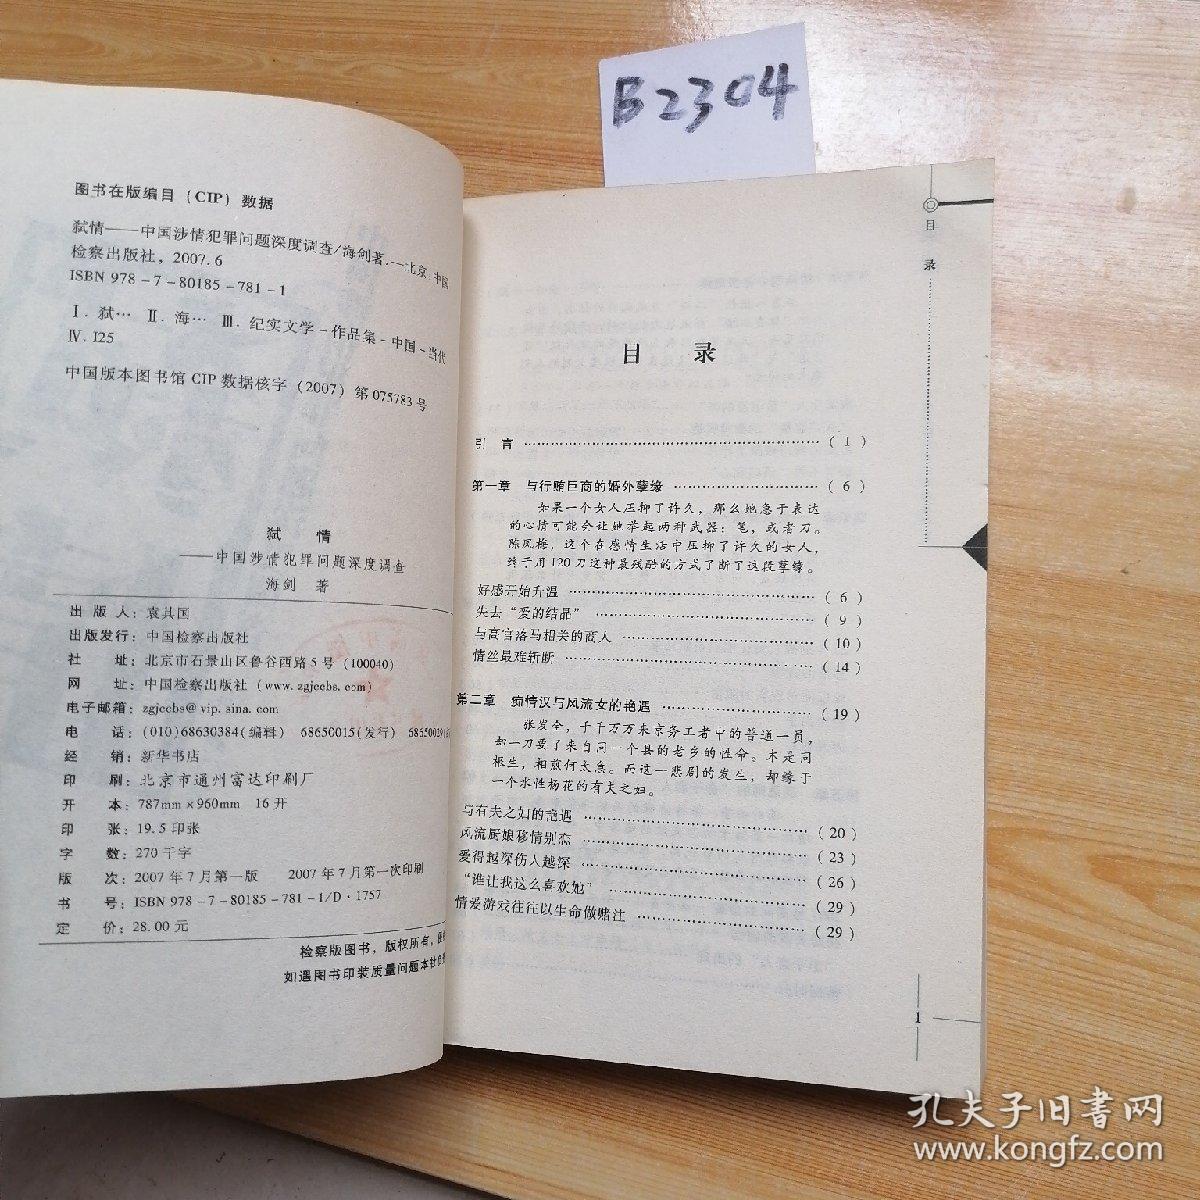 B2304
图书在版编目(CIP)数据
弑情——中国涉情犯罪问题深度调查/海剑著.—北京:中国
检察出版社,2007.6
ISBN 978-7-80185-781-1
Ⅰ.弑… Ⅱ.海… Ⅲ.纪实文学-作品集-中国-当代
Ⅳ.I25
中国版本图书馆CIP数据核字(2007)第075783号
弑 情
——中国涉情犯罪问题深度调查
海剑 著
出 版 人:袁其国
出版发行:中国检察出版社
社 址:北京市石景山区鲁谷西路5号(100040)
网 址:中国检察出版社(www.zgjccbs.com)
电子邮箱:zgjccbs@vip.sina.com
电 话:(010)68630384(编辑) 68650015(发行) 68650029
经 销:新华书店
印 刷:北京市通州富达印刷厂
开 本:787mm×960mm 16开
印 张:19.5印张
字 数:270千字
版 次:2007年7月第一版 2007年7月第一次印刷
书 号:ISBN 978-7-80185-781-1/D·1757
定 价:28.00元
检察版图书,版权所有,
如遇图书印装质量问题本社
目 录
目 录
引 言 ……………………………………(1)
第一章 与行贿巨商的婚外孽缘 ……………………(6)
如果一个女人压抑了许久,那么她急于表达
的心情可能会让她举起两种武器:笔,或者刀。
陈凤梅,这个在感情生活中压抑了许久的女人,
终于用120刀这种最残酷的方式了断了这段孽缘。
好感开始升温 ……………………………………(6)
失去“爱的结晶” ……………………………………(9)
与高官落马相关的商人 ……………………………(10)
情丝最难斩断 ……………………………………(14)
第二章 痴情汉与风流女的艳遇 ……………………(19)
张发全,千千万万来京务工者中的普通一员,
却一刀要了来自同一个县的老乡的性命。本是同
根生,相煎何太急。而这一悲剧的发生,却缘于
一个水性杨花的有夫之妇。
与有夫之妇的艳遇 ……………………………………(20)
风流厨娘移情别恋 ……………………………………(23)
爱得越深伤人越深 ……………………………………(26)
“谁让我这么喜欢她” ……………………………………(29)
情爱游戏往往以生命做赌注 ……………………………(29)
1
孔夫子旧书网
www.kongfz.com